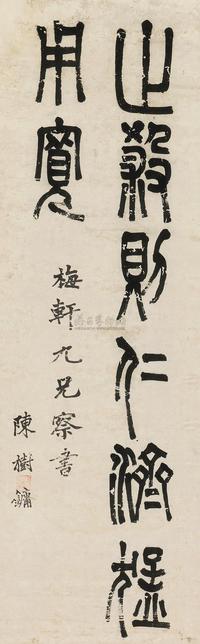 止殺則仁濟猛
用寬
梅軒九兄察書
陳樹鏞